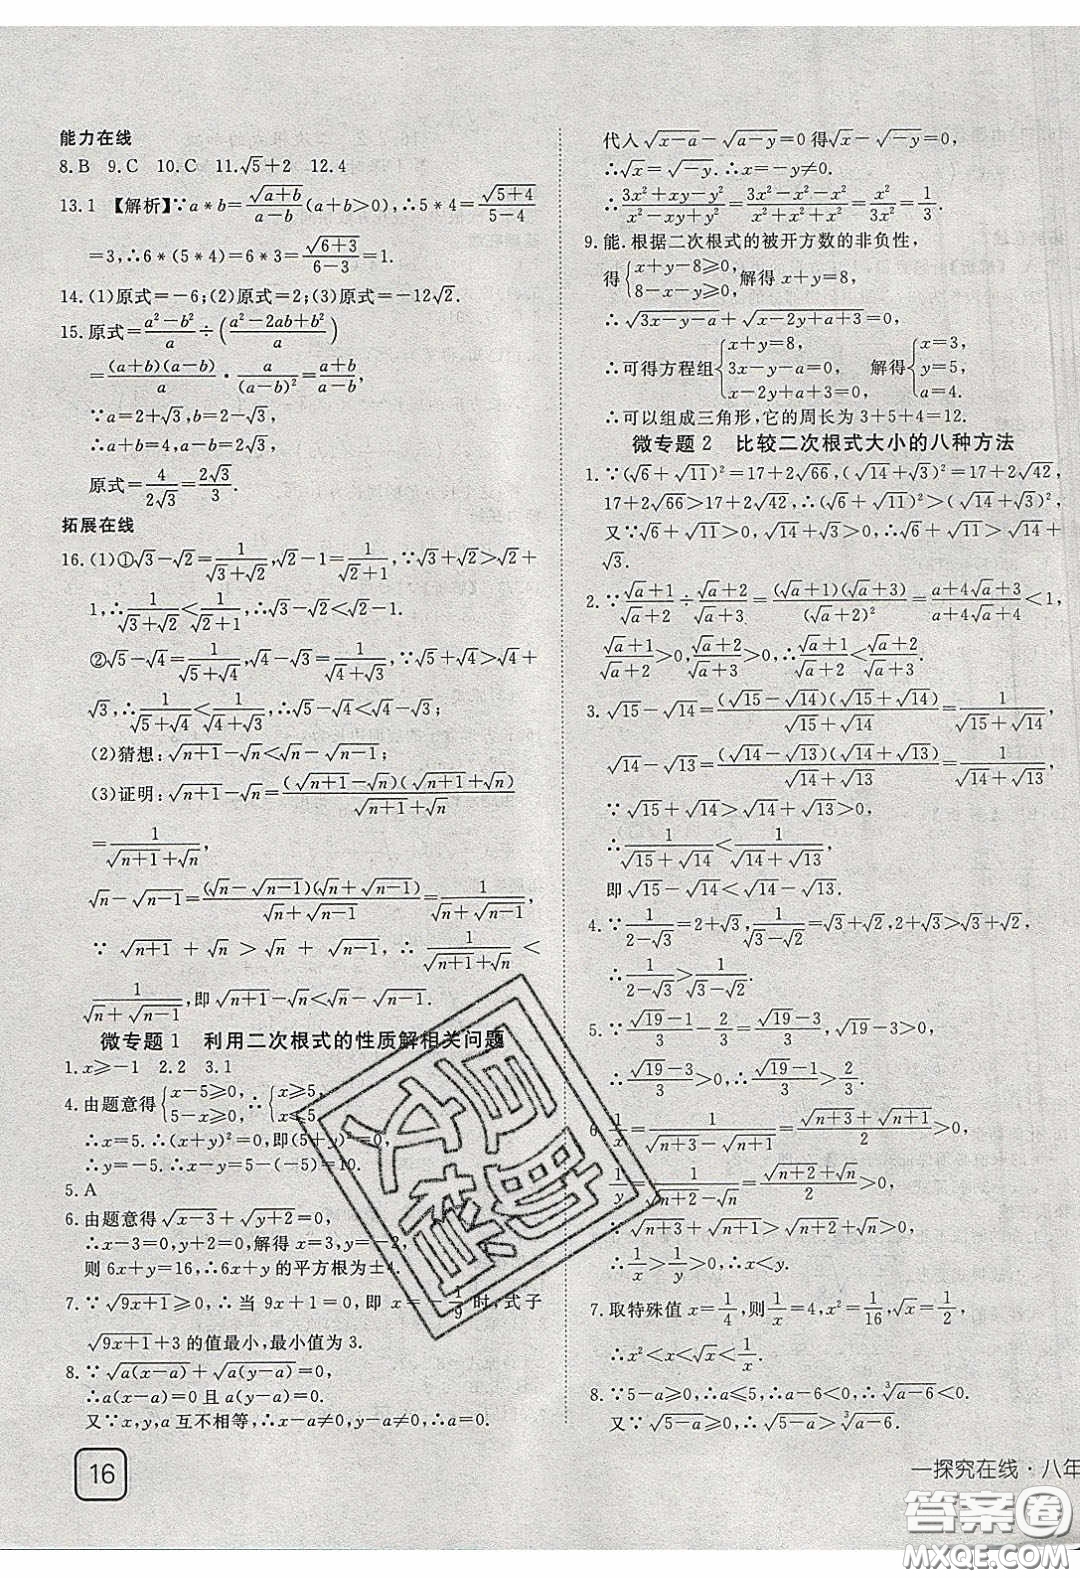 能力在线
8.B　9.C　10.C　11.√5+2　12.4
13.1　【解析】∵a*b=√(a+b)/(a-b)(a+b>0),∴5*4=√(5+4)/(5-4)
=3,∴6*(5*4)=6*3=√(6+3)/(6-3)=1.
14.(1)原式=-6;(2)原式=2;(3)原式=-12√2.
15.原式=(a²-b²)/a÷((a²-2ab+b²)/a)
=(a+b)(a-b)/a·a/(a-b)²=(a+b)/(a-b),
∵a=2+√3,b=2-√3,
∴a+b=4,a-b=2√3,
原式=4/(2√3)=2√3/3.
拓展在线
16.(1)①√3-√2=1/(√3+√2),√2-1=1/(√2+1),∵√3+√2>√2+
1,∴1/(√3+√2)<1/(√2+1),∴√3-√2<√2-1;
②√5-√4=1/(√5+√4),√4-√3=1/(√4+√3),∵√5+√4>√4+
√3,∴1/(√5+√4)<1/(√4+√3),∴√5-√4<√4-√3;
(2)猜想:√(n+1)-√n<√n-√(n-1);
(3)证明:√(n+1)-√n=(√(n+1)-√n)(√(n+1)+√n)/(√(n+1)+√n)
=1/(√(n+1)+√n),
√n-√(n-1)=(√n-√(n-1))(√n+√(n-1))/(√n+√(n-1))=1/(√n+√(n-1)),
∵ √(n+1)+√n>√n+√(n-1), ∴ 1/(√(n+1)+√n) <
1/(√n+√(n-1)),即√(n+1)-√n<√n-√(n-1).
微专题1　利用二次根式的性质解相关问题
1.x≥-1　2.2　3.1
4.由题意得{x-5≥0,5-x≥0,∴{x≥5,x≤5
∴x=5.∴(x+y)²=0,即(5+y)²=0.
∴y=-5.∴x-y=5-(-5)=10.
5.A
6.由题意得√(x-3)+√(y+2)=0,
∴x-3=0,y+2=0,解得x=3,y=-2,
则6x+y=16,∴6x+y的平方根为±4.
7.∵√(9x+1)≥0,∴当9x+1=0,即x=-1/9时,式子
√(9x+1)+3的值最小,最小值为3.
8.∵√(a(x-a))+√(a(y-a))=0,
∴a(x-a)=0且a(y-a)=0.
又∵x,y,a互不相等,∴x-a≠0,y-a≠0,∴a=0.
16
代入√(x-a)-√(a-y)=0得√x-√(-y)=0,
∴√x=√(-y).∴x=-y≠0.
∴(3x²+xy-y²)/(x²-xy+y²)=(3x²-x²-x²)/(x²+x²+x²)=x²/(3x²)=1/3.
9.能.根据二次根式的被开方数的非负性,
得{x+y-8≥0,8-x-y≥0,解得x+y=8.
∴√(3x-y-a)+√(x-2y+a+3)=0,
∴可得方程组{x+y=8,3x-y-a=0,x-2y+a+3=0,　解得{x=3,y=5,a=4.
∴可以组成三角形,它的周长为3+5+4=12.
微专题2　比较二次根式大小的八种方法
1.∵(√6+√11)²=17+2√66,(√14+√3)²=17+2√42,
17+2√66>17+2√42,∴(√6+√11)²>(√14+√3)²,
又∵√6+√11>0,√14+√3>0,∴√6+√11>√14+
√3.
2.∵(√a+1)/(√a+2)÷(√a+2)/(√a+3)=(√a+1)(√a+3)/(√a+2)²=(a+4√a+3)/(a+4√a+4)<1,
(√a+1)/(√a+2)>0,(√a+2)/(√a+3)>0,∴(√a+1)/(√a+2)<(√a+2)/(√a+3).
3.√15-√14=(√15-√14)(√15+√14)/(√15+√14)=1/(√15+√14),
√14-√13=(√14-√13)(√14+√13)/(√14+√13)=1/(√14+√13),
∵√15+√14>√14+√13>0,
∴1/(√15+√14)<1/(√14+√13),
即√15-√14<√14-√13.
4.∵1/(2-√3)=2+√3,1/(√3-√2)=√3+√2,2+√3>√3+√2,
∴1/(2-√3)>1/(√3-√2).
5.∵(√19-1)/3-2/3=(√19-3)/3,√19>3,
∴(√19-3)/3>0,∴(√19-1)/3>2/3.
6.1/x=1/(√(n+3)-√(n+1))=(√(n+3)+√(n+1))/2>0,
1/y=1/(√(n+2)-√n)=(√(n+2)+√n)/2>0,
∵√(n+3)+√(n+1)>√(n+2)+√n>0,
∴1/x>1/y>0,∴x<y.
7.取特殊值x=1/4,则1/x=4,x²=1/16,√x=1/2,
∴x²<x<√x<1/x.
8.∵5-a≥0,∴a≤5,∴a-6<0,∴³√(a-6)<0.
又∵√(5-a)≥0,∴√(5-a)>³√(a-6).
一探究在线·八年
答案圈
MXQE.COM